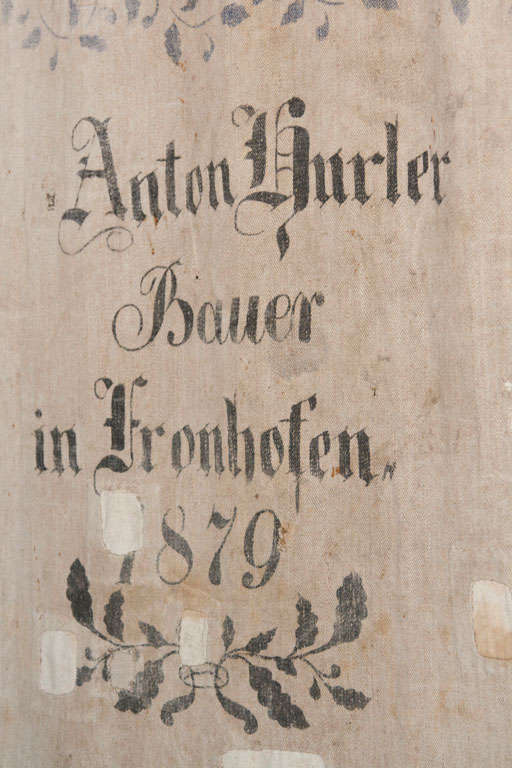 Anton Hurler
Bauer
in Fronhofen„
1879